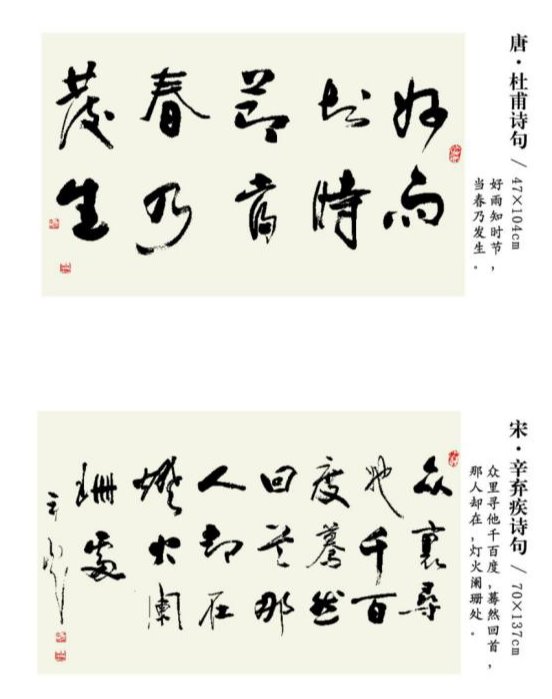 唐·杜甫诗句 / 47×104cm
好雨知时节，
当春乃发生。
好雨
知時
節當
春乃
發生
宋·辛弃疾诗句 / 70×137cm
众里寻他千百度，蓦然回首，
那人却在，灯火阑珊处。
众裏尋
他千百
度驀然
回首那
人却在
燈火闌
珊處